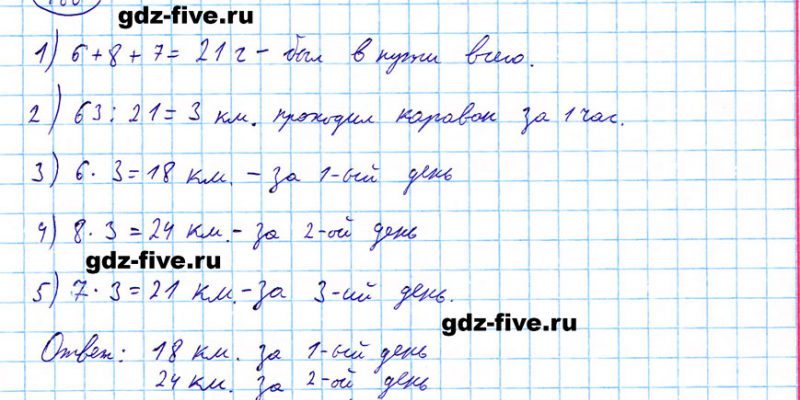 gdz-five.ru
1) 6 + 8 + 7 = 21 г - был в пути всего.
2) 63 : 21 = 3 км. проходил караван за 1 час.
3) 6 · 3 = 18 км. - за 1-ый день
4) 8 · 3 = 24 км. - за 2-ой день
gdz-five.ru
5) 7 · 3 = 21 км. - за 3-ий день.
gdz-five.ru
Ответ: 18 км. за 1-ый день
24 км. за 2-ой день